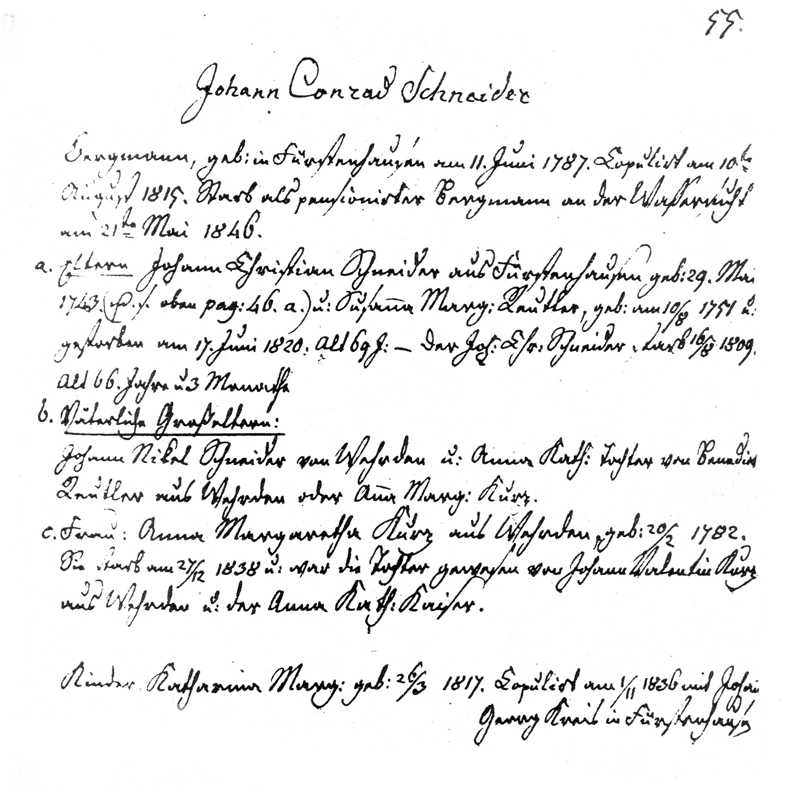 55.
Johann Conrad Schneider
Bergmann, geb: in Fürstenhausen am 11. Juni 1787. Copulirt am 10te
August 1815. Starb als pensionirter Bergmann an der Wassersucht
am 21te Mai 1846.
a. Eltern Johann Christian Schneider aus Fürstenhausen geb: 29. Mai
1743. s. oben pag: 46. a.) u: Susaña Marg: Reutler, geb: am 10/8 1751 u:
gestorben am 17. Juni 1820. Alt 69 J: — Der Joh: Chr: Schneider starb 16/8 1809.
Alt 66. Jahre u 3 Monathe
b. Väterliche Großeltern:
Johann Nikel Schneider von Wehrden u: Anna Kath: Tochter von Benedict
Reutler aus Wehrden oder Aña Marg: Kurz.
c. Frau: Anna Margaretha Kurz aus Wehrden, geb: 20/2 1782.
Sie starb am 27/12 1838 u: war die Tochter gewesen von Johann Valentin Kurz
aus Wehrden u: der Anna Kath: Kaiser.
Kinder Katharina Marg: geb: 26/3 1817. Copulirt am 1/11 1836 mit Johan
Georg Kreis in Fürstenhausen